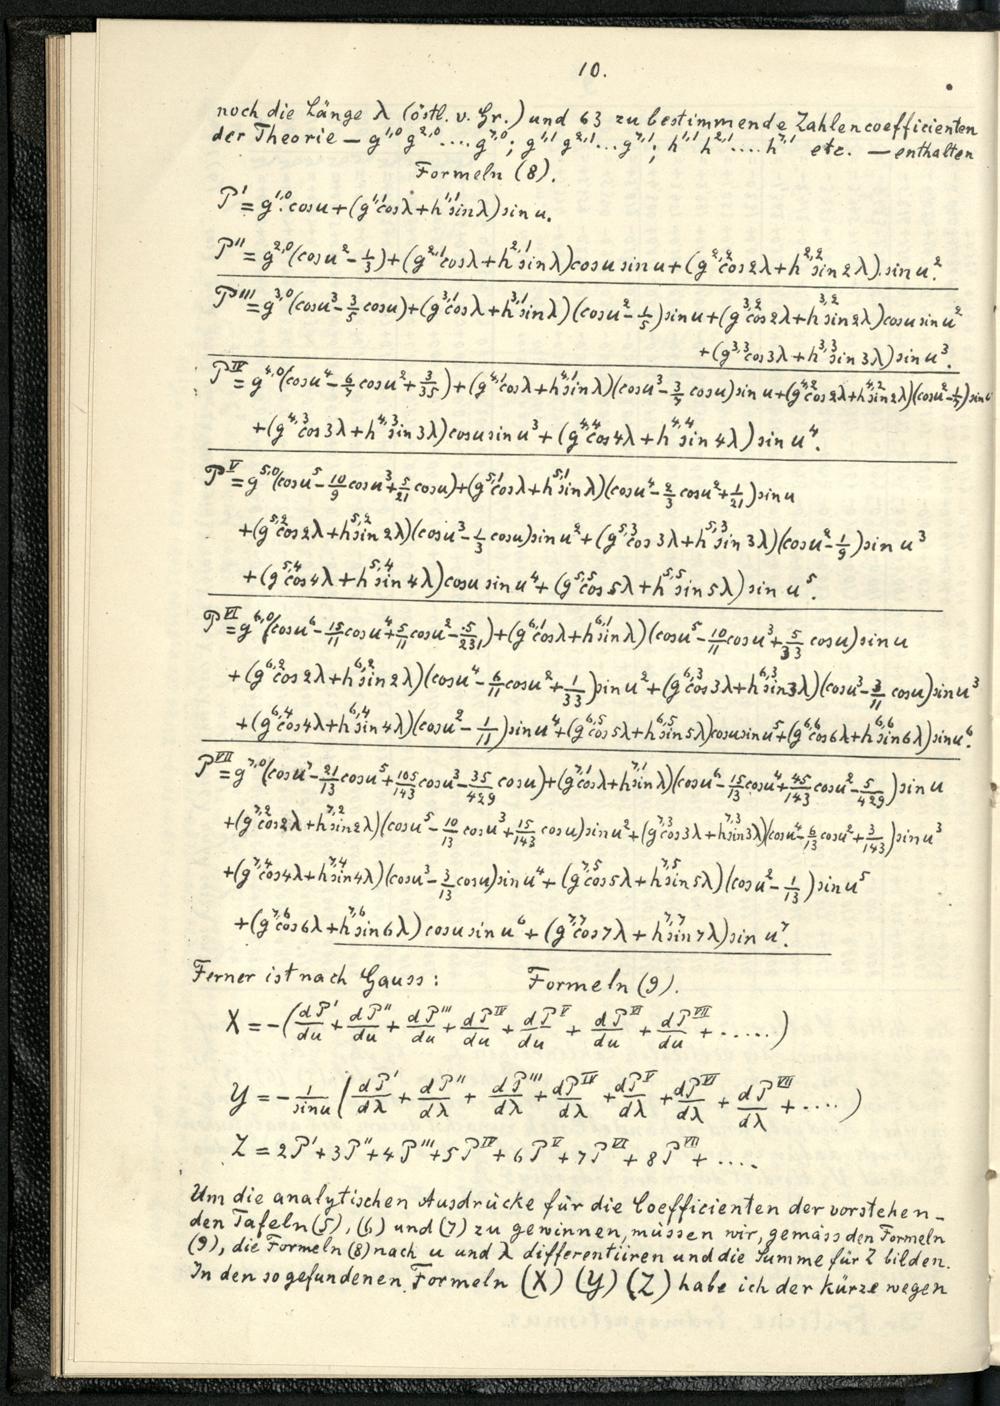 10.
noch die Länge λ (östl. v. Gr.) und 63 zu bestimmende Zahlencoefficienten
der Theorie — g^{1,0} g^{2,0} .... g^{7,0}; g^{1,1} g^{2,1} ... g^{7,1}; h^{1,1} h^{2,1} .... h^{7,1} etc. — enthalten
Formeln (8).
P' = g^{1,0} cos u + (g^{1,1} cos λ + h^{1,1} sin λ) sin u.
P'' = g^{2,0} (cos u^2 - 1/3) + (g^{2,1} cos λ + h^{2,1} sin λ) cos u sin u + (g^{2,2} cos 2λ + h^{2,2} sin 2λ). sin u^2.
P''' = g^{3,0} (cos u^3 - 3/5 cos u) + (g^{3,1} cos λ + h^{3,1} sin λ) (cos u^2 - 1/5) sin u + (g^{3,2} cos 2λ + h^{3,2} sin 2λ) cos u sin u^2
+ (g^{3,3} cos 3λ + h^{3,3} sin 3λ) sin u^3.
P^{IV} = g^{4,0} (cos u^4 - 6/7 cos u^2 + 3/35) + (g^{4,1} cos λ + h^{4,1} sin λ) (cos u^3 - 3/7 cos u) sin u + (g^{4,2} cos 2λ + h^{4,2} sin 2λ) (cos u^2 - 1/7) sin u
+ (g^{4,3} cos 3λ + h^{4,3} sin 3λ) cos u sin u^3 + (g^{4,4} cos 4λ + h^{4,4} sin 4λ) sin u^4.
P^{V} = g^{5,0} (cos u^5 - 10/9 cos u^3 + 5/21 cos u) + (g^{5,1} cos λ + h^{5,1} sin λ) (cos u^4 - 2/3 cos u^2 + 1/21) sin u
+ (g^{5,2} cos 2λ + h^{5,2} sin 2λ) (cos u^3 - 1/3 cos u) sin u^2 + (g^{5,3} cos 3λ + h^{5,3} sin 3λ) (cos u^2 - 1/9) sin u^3
+ (g^{5,4} cos 4λ + h^{5,4} sin 4λ) cos u sin u^4 + (g^{5,5} cos 5λ + h^{5,5} sin 5λ) sin u^5.
P^{VI} = g^{6,0} (cos u^6 - 15/11 cos u^4 + 5/11 cos u^2 - 5/231) + (g^{6,1} cos λ + h^{6,1} sin λ) (cos u^5 - 10/11 cos u^3 + 5/33 cos u) sin u
+ (g^{6,2} cos 2λ + h^{6,2} sin 2λ) (cos u^4 - 6/11 cos u^2 + 1/33) sin u^2 + (g^{6,3} cos 3λ + h^{6,3} sin 3λ) (cos u^3 - 3/11 cos u) sin u^3
+ (g^{6,4} cos 4λ + h^{6,4} sin 4λ) (cos u^2 - 1/11) sin u^4 + (g^{6,5} cos 5λ + h^{6,5} sin 5λ) cos u sin u^5 + (g^{6,6} cos 6λ + h^{6,6} sin 6λ) sin u^6.
P^{VII} = g^{7,0} (cos u^7 - 21/13 cos u^5 + 105/143 cos u^3 - 35/429 cos u) + (g^{7,1} cos λ + h^{7,1} sin λ) (cos u^6 - 15/13 cos u^4 + 45/143 cos u^2 - 5/429) sin u
+ (g^{7,2} cos 2λ + h^{7,2} sin 2λ) (cos u^5 - 10/13 cos u^3 + 15/143 cos u) sin u^2 + (g^{7,3} cos 3λ + h^{7,3} sin 3λ) (cos u^4 - 6/13 cos u^2 + 3/143) sin u^3
+ (g^{7,4} cos 4λ + h^{7,4} sin 4λ) (cos u^3 - 3/13 cos u) sin u^4 + (g^{7,5} cos 5λ + h^{7,5} sin 5λ) (cos u^2 - 1/13) sin u^5
+ (g^{7,6} cos 6λ + h^{7,6} sin 6λ) cos u sin u^6 + (g^{7,7} cos 7λ + h^{7,7} sin 7λ) sin u^7.
Ferner ist nach Gauss: Formeln (9).
X = - (dP'/du + dP''/du + dP'''/du + dP^{IV}/du + dP^{V}/du + dP^{VI}/du + dP^{VII}/du + ......)
Y = - 1/sin u (dP'/dλ + dP''/dλ + dP'''/dλ + dP^{IV}/dλ + dP^{V}/dλ + dP^{VI}/dλ + dP^{VII}/dλ + ....)
Z = 2P' + 3P'' + 4P''' + 5P^{IV} + 6P^{V} + 7P^{VI} + 8P^{VII} + ....
Um die analytischen Ausdrücke für die Coefficienten der vorstehen-
den Tafeln (5), (6) und (7) zu gewinnen, müssen wir, gemäss den Formeln
(9), die Formeln (8) nach u und λ differentiiren und die Summe für Z bilden.
In den so gefundenen Formeln (X) (Y) (Z) habe ich der kürze wegen